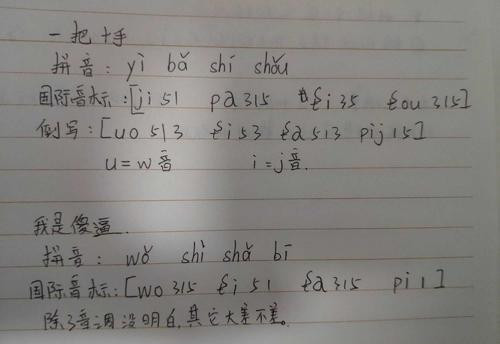 一把十手
拼音: yì bǎ shí shǒu
国际音标:[ji 51 pa 315 ʂi 35 ʂou 315]
倒写: [uo 513 ʂi 53 ʂa 513 pij 15]
u=w音 i=j音.
我是傻逼.
拼音: wǒ shì shǎ bī
国际音标:[wo 315 ʂi 51 ʂa 315 pi 1]
除了音调没明白,其它大差不差。